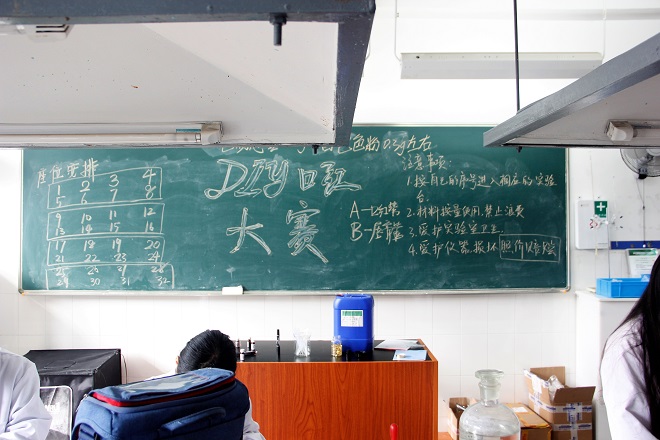 色粉0.3g左右
座位安排
1 2 3 4
5 6 7 8
9 10 11 12
13 14 15 16
17 18 19 20
21 22 23 24
25 26 27 28
29 30 31 32
DIY口红
大赛
A
B
注意事项:
1.按自己的序号进入相应的实验
台.
2.材料按量使用,禁止浪费
3.爱护实验室卫生
4.爱护仪器,损坏照价赔偿